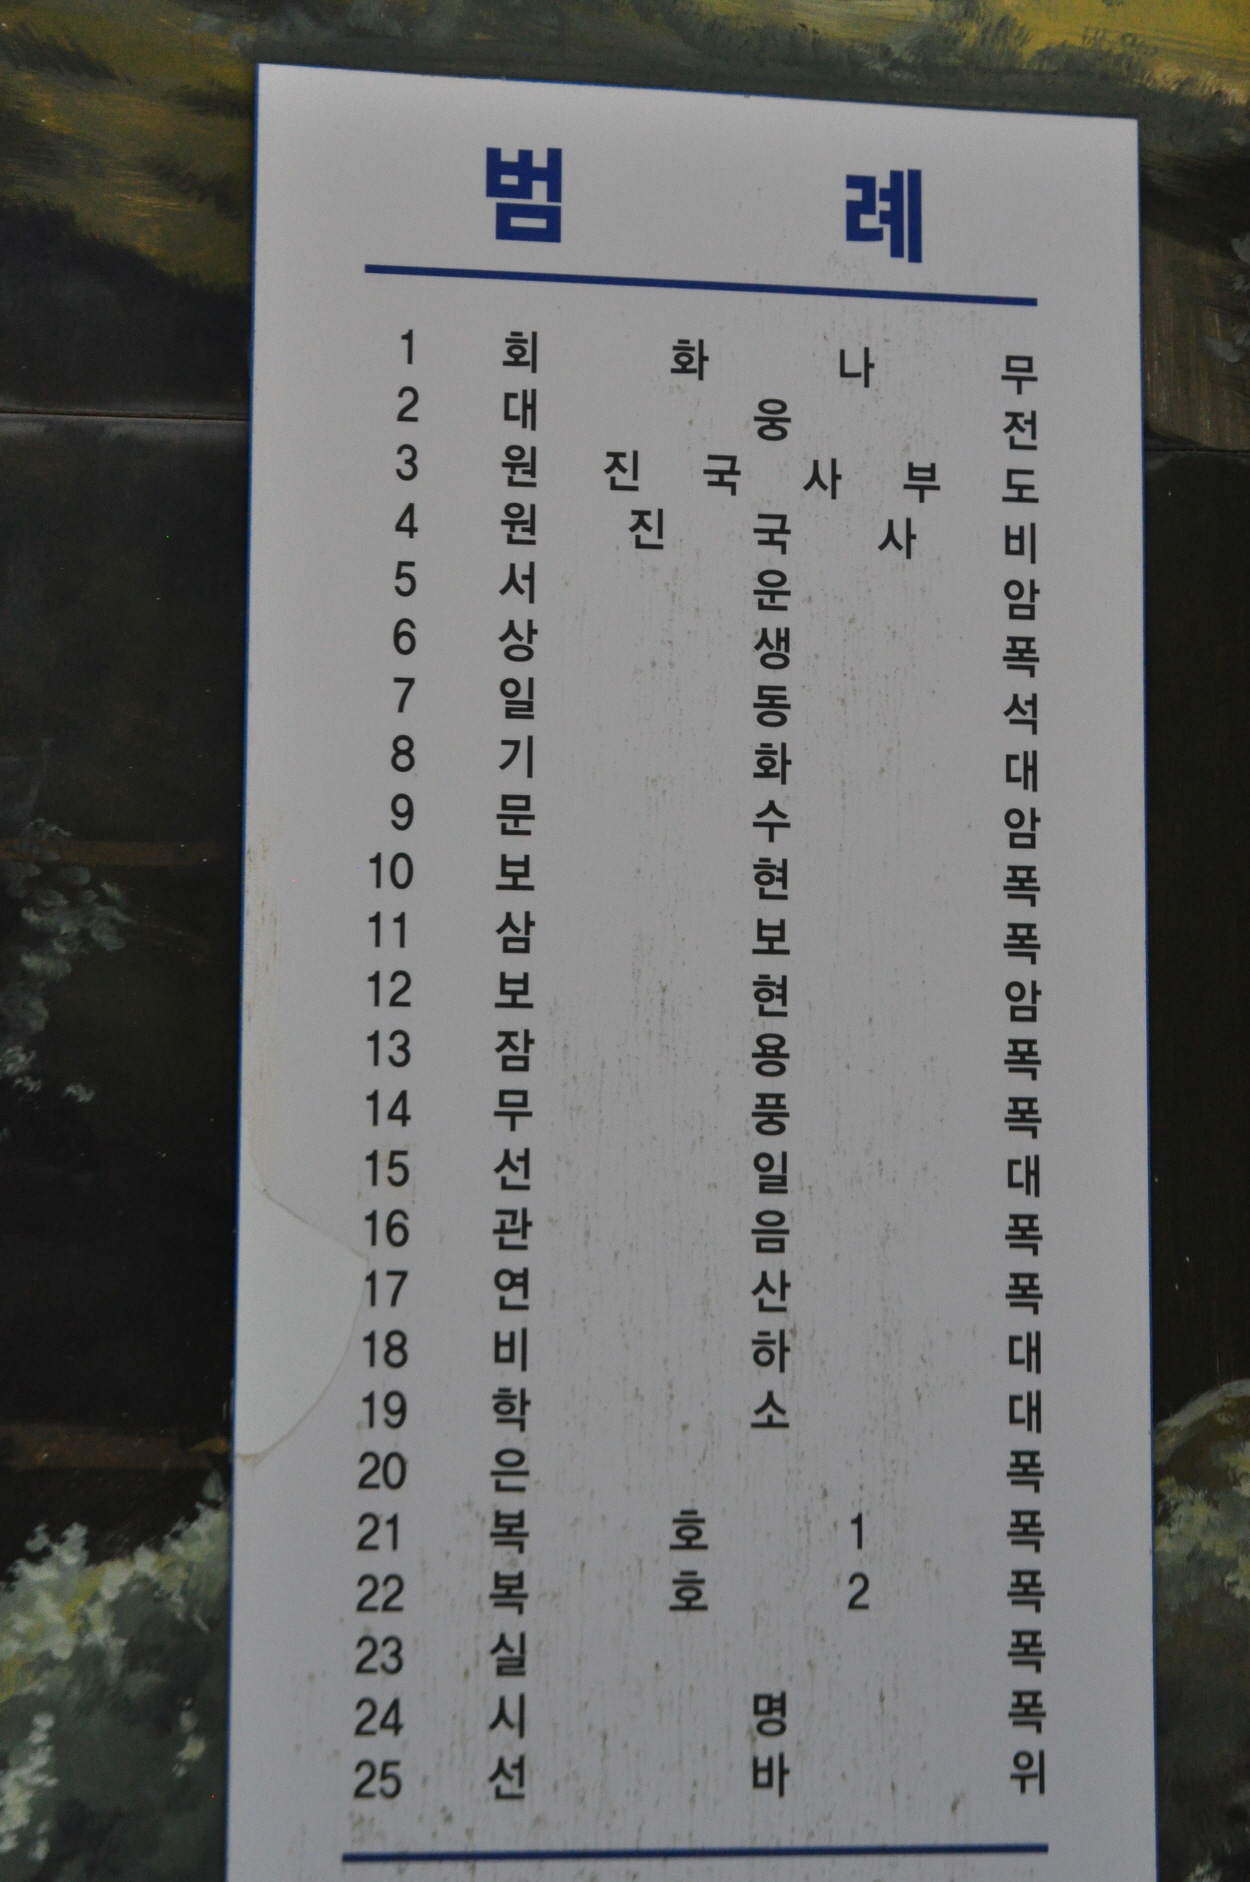 범 례
1 회 화 나 무
2 대 웅 전
3 원 진 국 사 부 도
4 원 진 국 사 비
5 서 운 암
6 상 생 폭
7 일 동 석
8 기 화 대
9 문 수 암
10 보 현 폭
11 삼 보 폭
12 보 현 암
13 잠 용 폭
14 무 풍 폭
15 선 일 대
16 관 음 폭
17 연 산 폭
18 비 하 대
19 학 소 대
20 은 폭
21 복 호 1 폭
22 복 호 2 폭
23 실 폭
24 시 명 폭
25 선 바 위